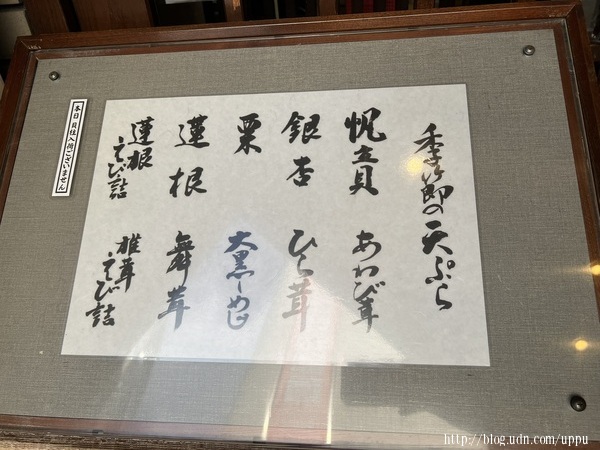 季節の天ぷら
帆立貝 あわび茸
銀杏 ひら茸
栗 大黒しめじ
蓮根 舞茸
蓮根えび詰 椎茸えび詰
本日貝柱入荷ございません
http://blog.udn.com/uppu